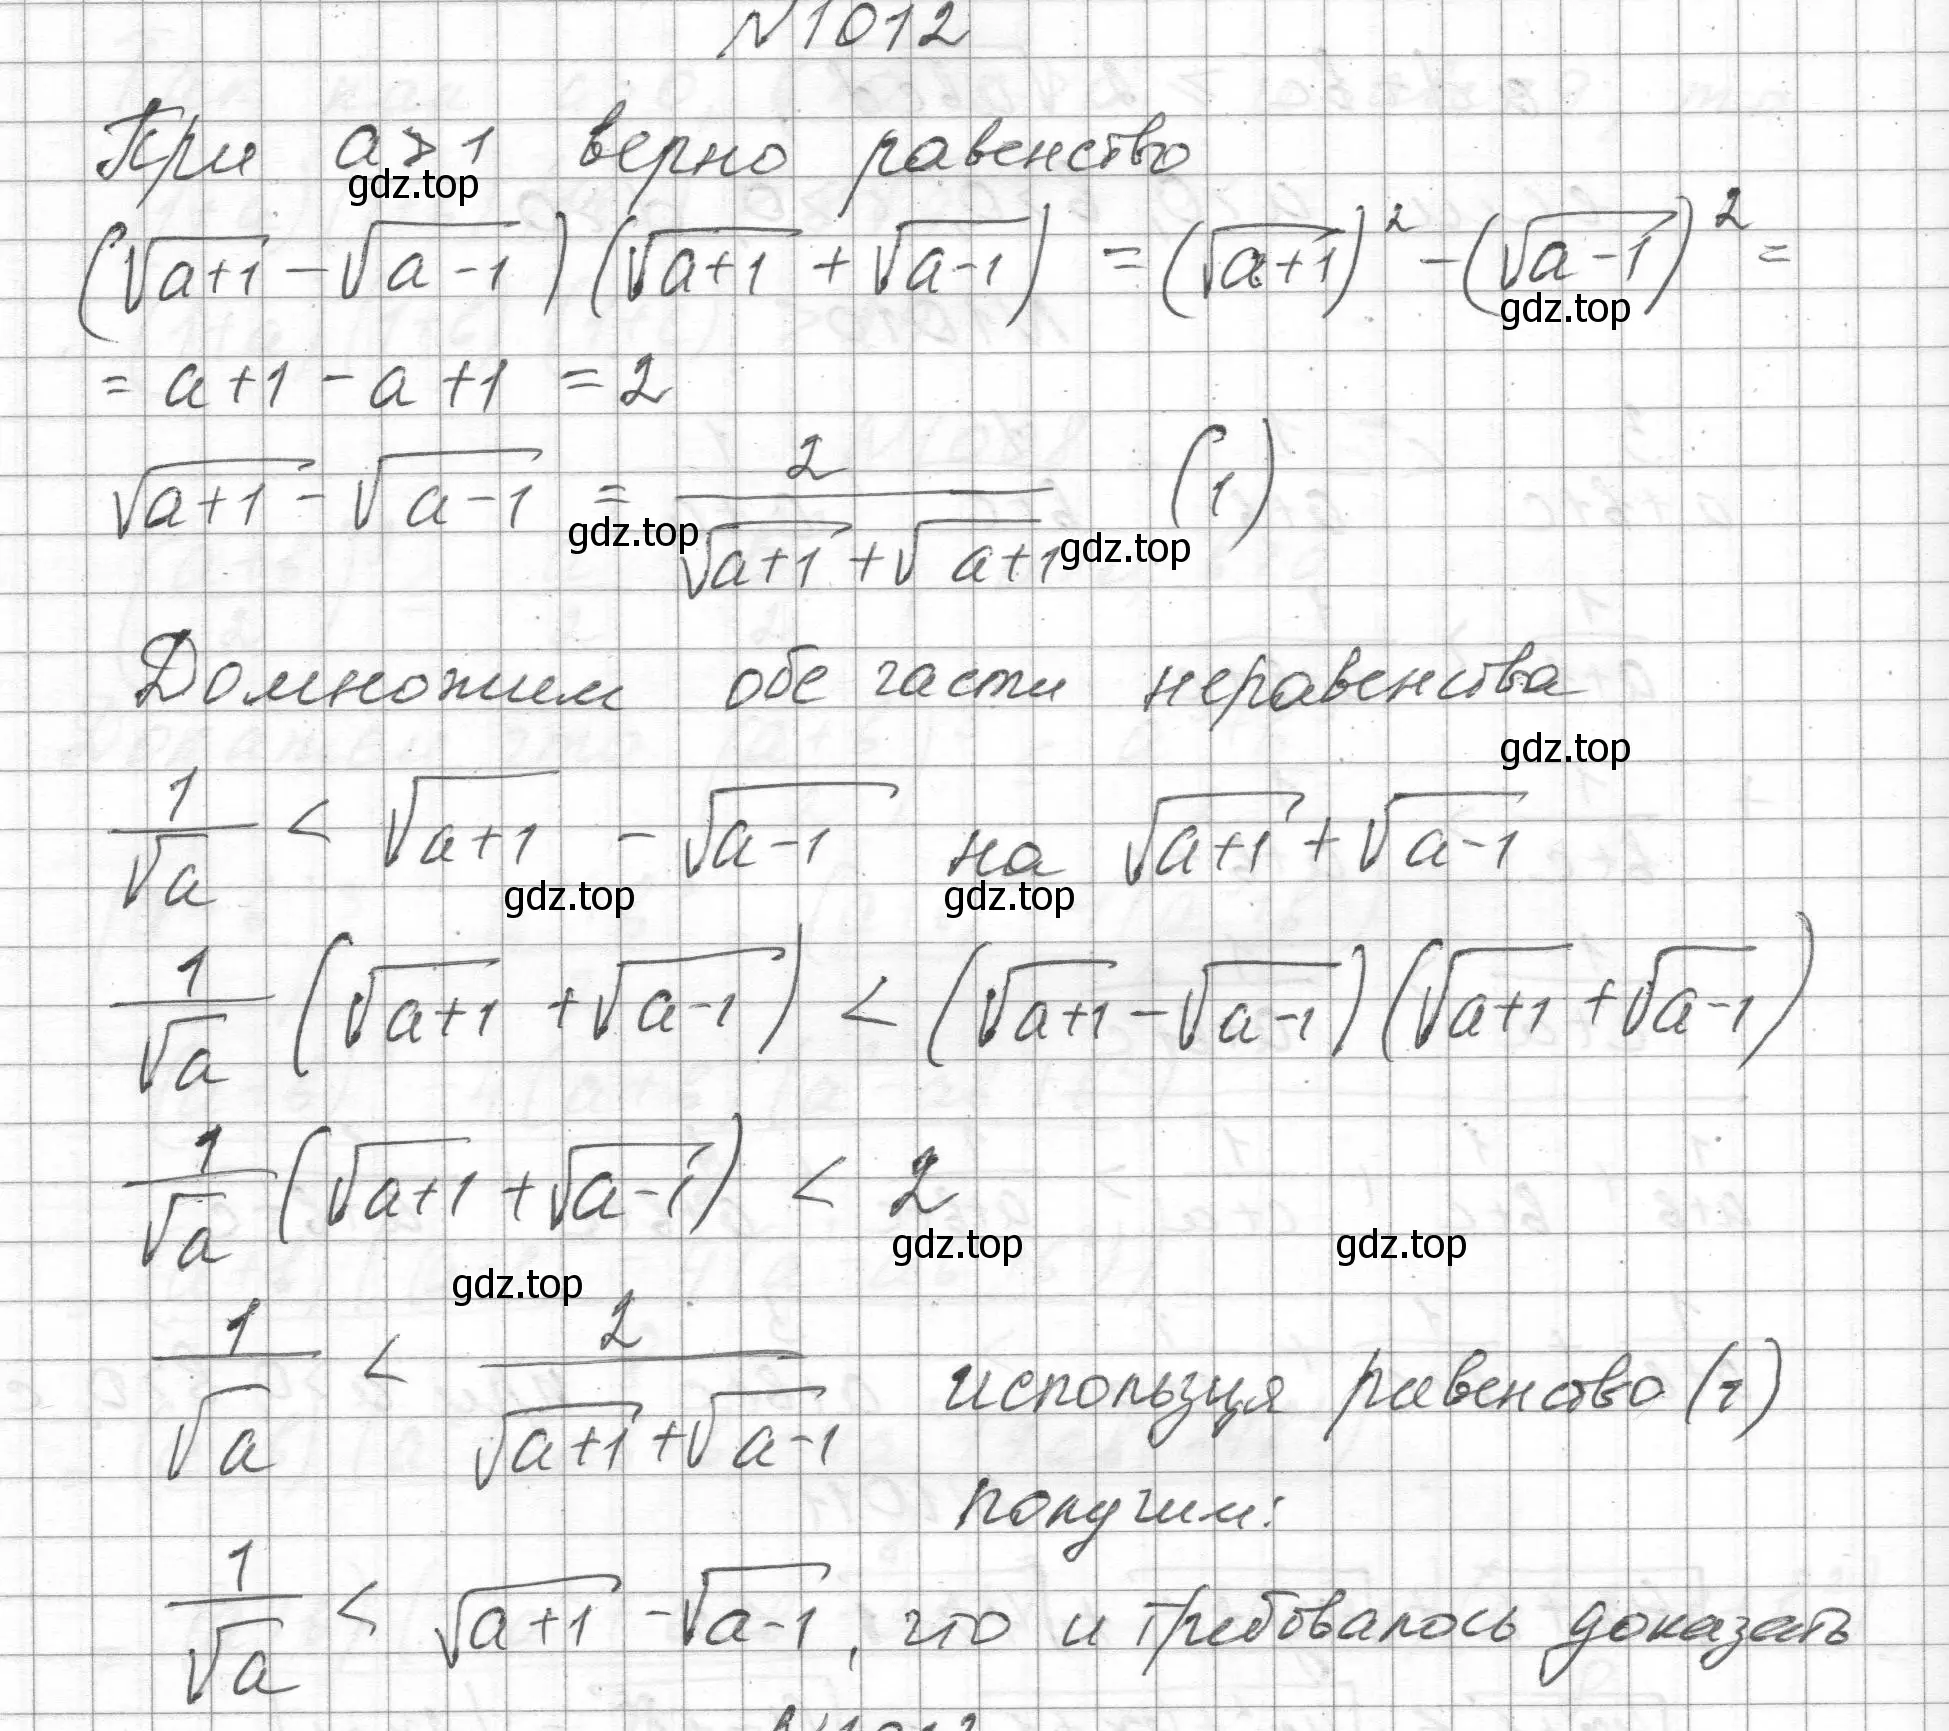 №1012
При a > 1 верно равенство
gdz.top
(√(a+1) − √(a−1)) (√(a+1) + √(a−1)) = (√(a+1))² − (√(a−1))² =
gdz.top
= a+1 − a+1 = 2
√(a+1) − √(a−1) = 2/(√(a+1) + √(a+1)) (1)
gdz.top gdz.top
Домножим обе части неравенства
gdz.top
1/√a < √(a+1) − √(a−1) на √(a+1) + √(a−1)
gdz.top gdz.top
1/√a (√(a+1) + √(a−1)) < (√(a+1) − √(a−1)) (√(a+1) + √(a−1))
1/√a (√(a+1) + √(a−1)) < 2
gdz.top gdz.top
gdz.top
1/√a < 2/(√(a+1) + √(a−1)) используя равенство (1)
получим:
1/√a < √(a+1) − √(a−1), что и требовалось доказать